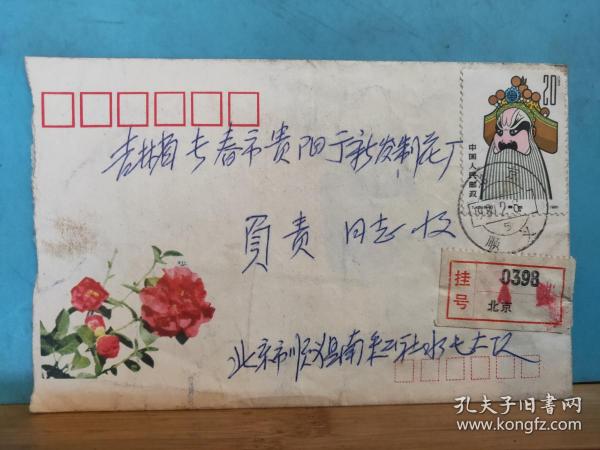 20分
中国人民邮政
吉林省长春市贵阳丁新发制花厂
负责同志收
挂号
0398
北京
北京市顺义县南彩公社水屯大队
孔夫子旧书网
www.kongfz.com